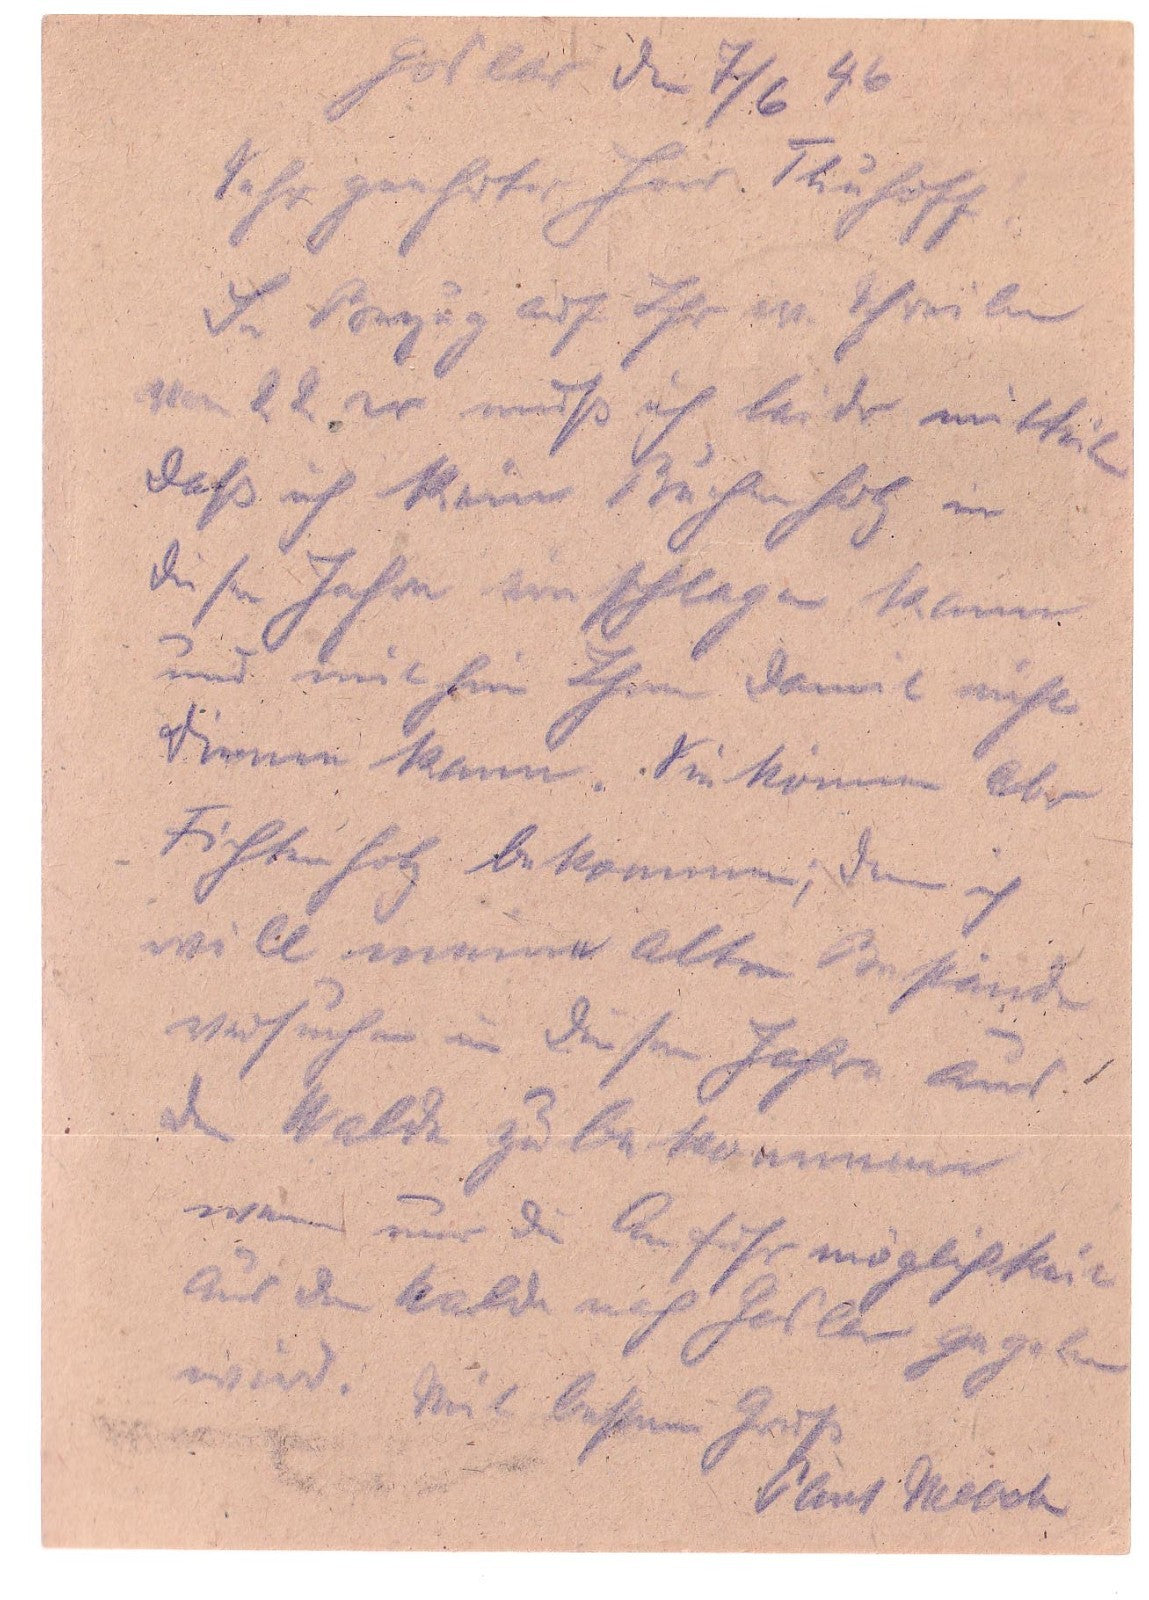 Goslar den 7/6 46
Sehr geehrter Herr Thuhoff!
In Bezug auf Ihr Schreiben
vom 22. er muß ich leider mitteilen
daß ich kein Buchenholz in
diesen Jahre einschlagen kann
und mithin Ihnen damit nicht
dienen kann. Sie können aber
Fichtenholz bekommen; denn ich
will meine alten Bestände
versuchen in diesen Jahre aus
den Walde zu bekommen
wenn nur die Anfuhrmöglichkeit
aus den Walde nach Goslar gegeben
wird. Mit bestem Gruß